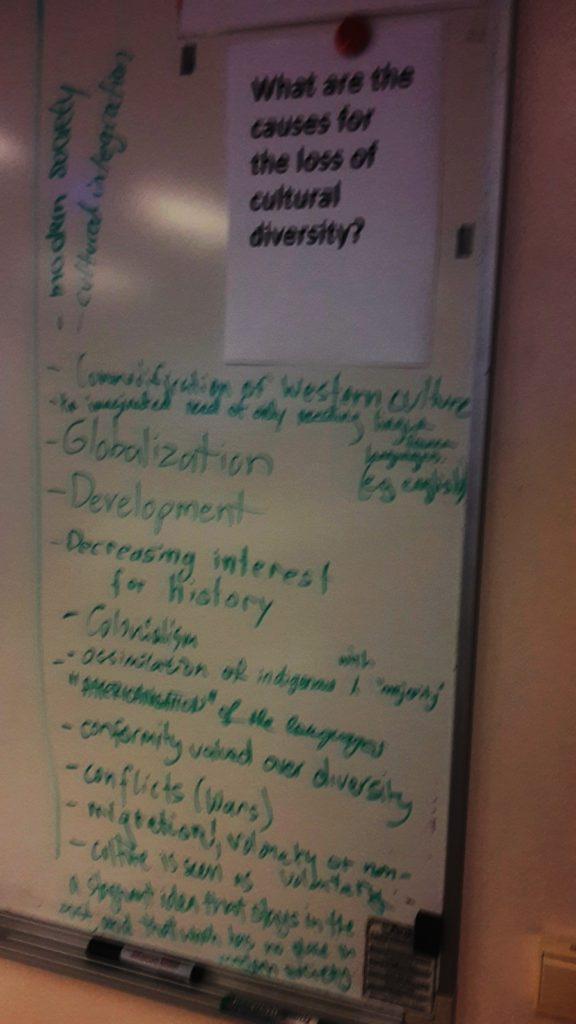 What are the
causes for
the loss of
cultural
diversity?
- modern society
- cultural integration
- Commodification of Western culture
- An imagined need of only needing
languages
(eg english)
- Globalization
- Development
- Decreasing interest
for History
- Colonialism
- assimilation of indigenous with "majority"
"AMERICANISATION" of the languages
- conformity valued over diversity
- conflicts (Wars)
- migration!, volontary or non-
voluntary.
- culture is seen as
a stagnant idea that stays in the
past, and that which has no place in
modern society